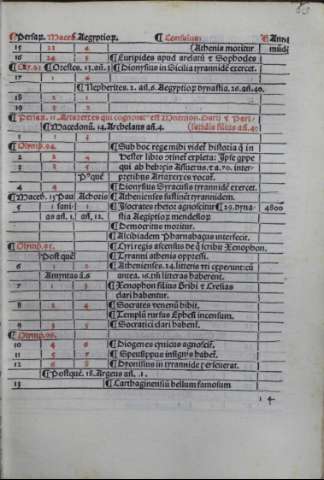 ¶Persaꝝ. Maced. Aegyptioꝝ. ¶Consulum ¶Anni
15 22 4 Athenis moritur mūdi
16 24 5 ¶Euripides apud arelatū & Sophocles
¶Oly. 93. ¶Orestes. 13. añ. 1 ¶Dionysius in Sicilia tyrannidē exercet.
17 1 6
¶Nepherites. 2. añ. 6. Aegyptioꝝ dynastia. 26. añ. 40.
18 2 1
19 3 2
¶Persaꝝ. 11. Artaxerxes qui cognominatꝰ est Mnemon. Darii & Pari-
¶Macedonū. 14. Archelaus añ. 4. satidis filius añ. 40
1 1 3
¶Olymp. 94. ¶Sub hoc rege mihi videt historia ꝗ in
2 2 4 hester libro ꝯtinet ex̄pleta: Ipse ꝗppe
3 3 qui ab hebreis Assuerus. & a. 70. inter-
Postquē pretibus Artaxerxes vocat̄.
4 4 ¶Dionysius Syracusis tyrannidē exercet.
¶Maced. 15 Pau Achoris ¶Athenienses sustinēt tyrannidem.
5 1 sani- 1 ¶Isocrates rhetor agnoscitur ¶29. dyna- 4800
as añ. 1. añ. 12. stia Aegyptioꝝ mendesioꝝ
¶Democritus moritur.
¶Alcibiadem Pharnabazus interfecit.
¶Olymp. 95. ¶Cyri regis ascensus de ꝗ scribit Xenophon.
Postquē ¶Tyranni athenis oppressi.
6 2 ¶Athenienses. 24. litteris vti ceperunt cū
Amyntas ā. 6 antea. 16. tm̄ litteras haberent.
7 1 3 ¶Xenophon filius Gribi & Ctesias
clari habentur.
8 2 4 ¶Socrates venenū bibit.
¶Templū rursus Ephesi incensum.
9 3 5 ¶Socratici clari habent̄.
¶Olymp. 96.
10 4 6 ¶Diogenes cynicus agnoscit̄.
11 5 7 ¶Speusippus insignis habet̄.
12 6 8 ¶Dionysius in tyrannide perseuerat.
¶Postquē. 18. Argeus añ. 1.
13 ¶Carthaginensiū bellum famosum
14